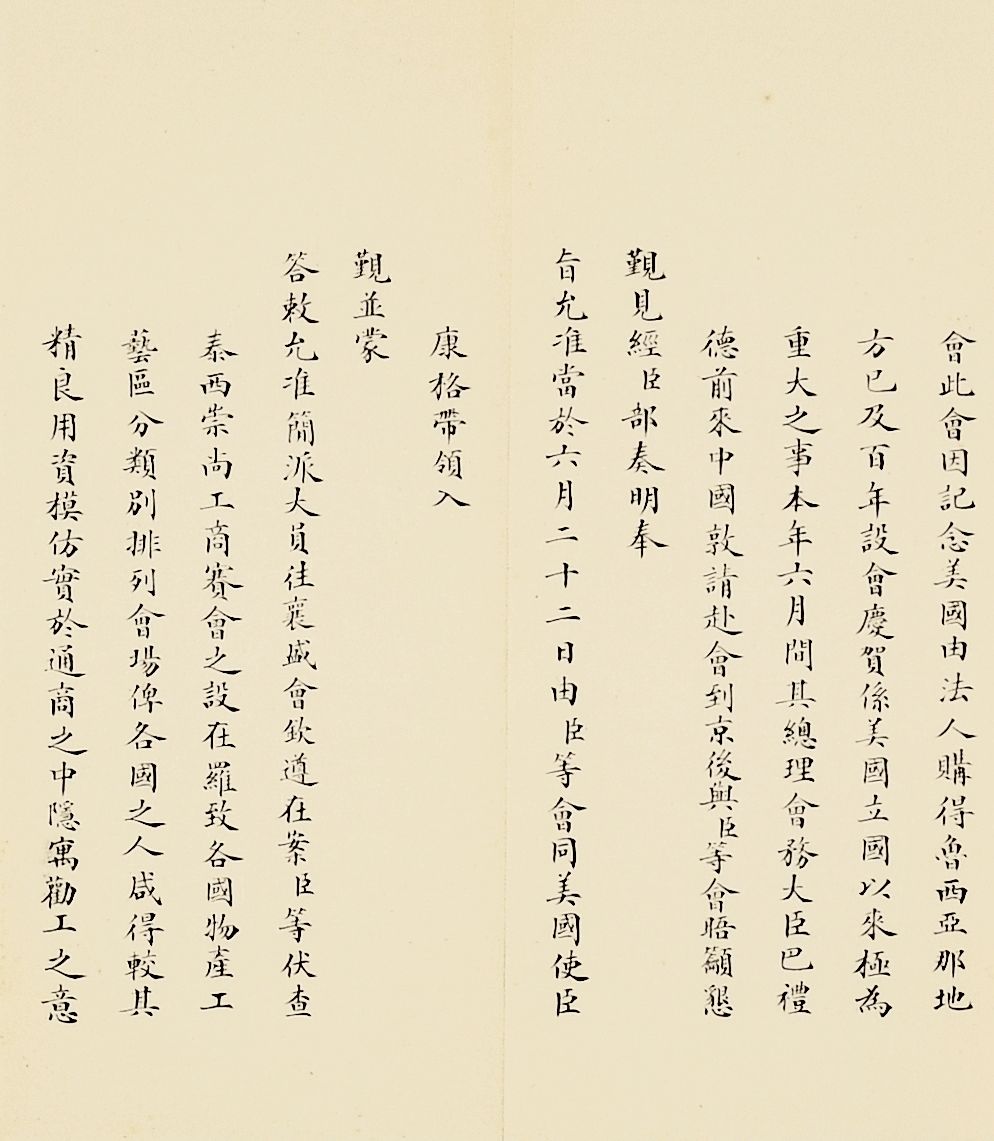 會此會因記念美國由法人購得魯西亞那地
方已及百年設會慶賀係美國立國以來極為
重大之事本年六月間其總理會務大臣巴禮
德前來中國敦請赴會到京後與臣等會晤籲懇
覲見經臣部奏明奉
旨允准當於六月二十二日由臣等會同美國使臣
康格帶領入
覲並蒙
答敕允准簡派大員往襄盛會欽遵在案臣等伏查
泰西崇尚工商賽會之設在羅致各國物產工
藝區分類別排列會場俾各國之人咸得較其
精良用資模仿實於通商之中隱寓勸工之意